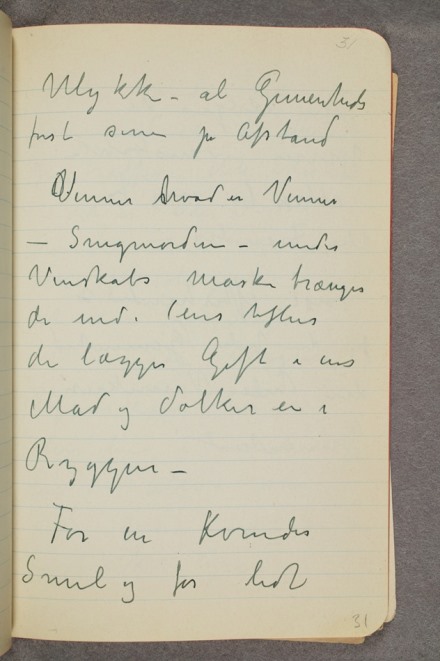 31
Ulykke – al Gemenheds
først som på Afstand
Venner hvad er Venner
– Snigmordere – under
Venskabs maske trænger
de ind i ens
de lægger Gift i ens
Mad og dolker en i
Ryggen –
For en Kvindes
Smil og for lidt
31